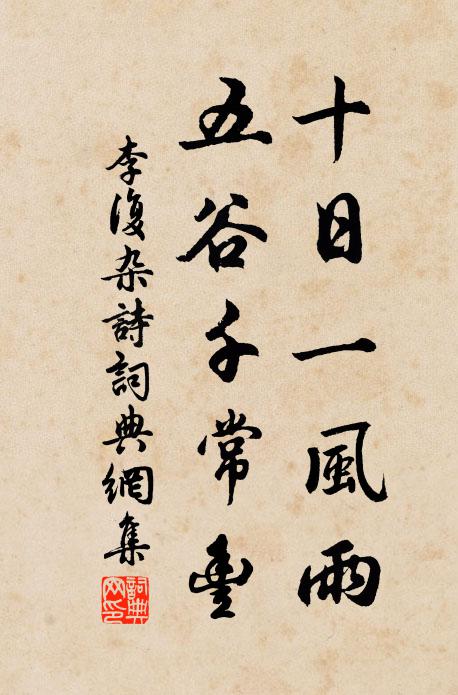 十日一風雨
五谷千常豊
李復杂詩詞典網集
詞典網印